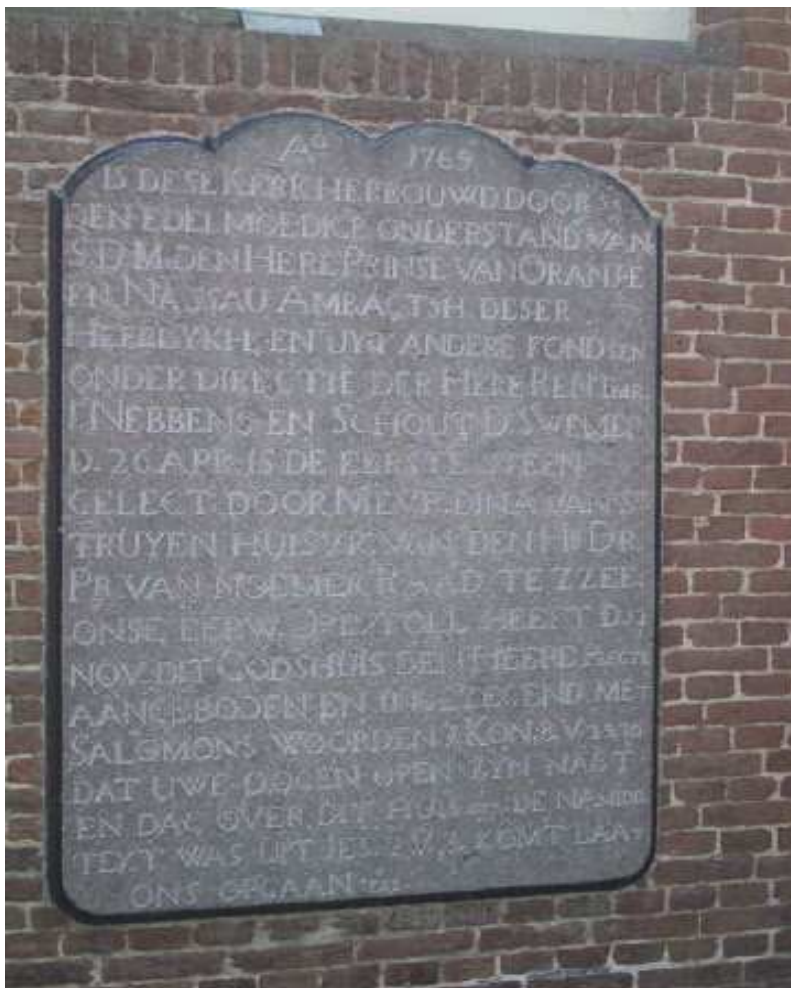 Aº 1765
IS DESE KERK HERBOUWD DOOR
DEN EDELMOEDIGE ONDERSTAND VAN
S.D.M. DEN HERE PRINSE VAN ORANJE
EN NASSAU AMBAGTSH. DESER
HEERLYKH. EN UYT ANDERE FONDSEN
ONDER DIRECTIE DER HERE RENTMR
NEBBENS EN SCHOUT D. SWEMER
D. 26 APR. IS DE EERSTE STEEN
GELEGT DOOR MEVR. DINA VAN ST
TRUYEN HUISVR. VAN DEN HR DR
PR VAN MOEMER RAAD TE ZZEE
ONSE EERW. HEEFT D
NOV. DIT GODSHUIS DEN HEERE
AANGEBODEN EN MET
SALOMONS WOORDEN KON. 8 V
DAT UWE OOGEN OPEN ZYN NAGT
EN DAG OVER DIT HUIS DE NAMIDD
TEXT WAS UIT JES. 2 V. KOMT LAAT
ONS OPGAAN